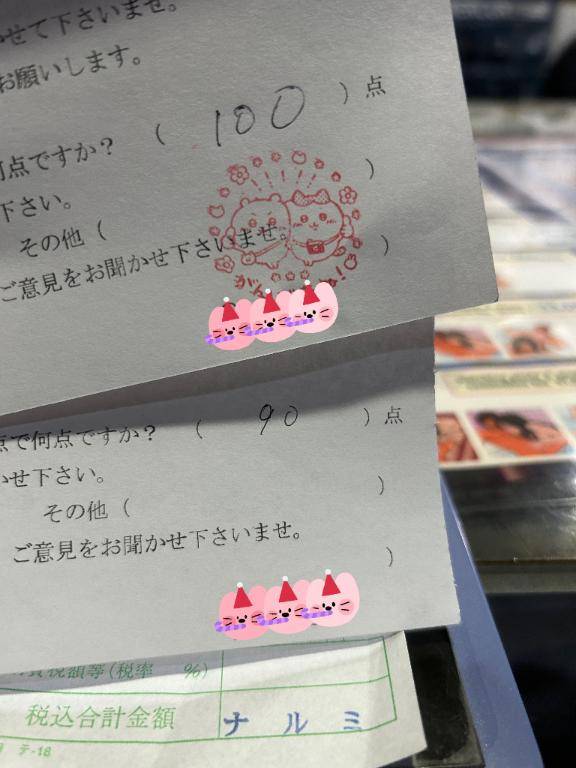 かせて下さいませ。
お願いします。
何点ですか？ （ 100 ）点
下さい。 ）
その他（ ）
ご意見をお聞かせ下さいませ。
点で何点ですか？ （ 90 ）点
かせ下さい。 ）
その他（
ご意見をお聞かせ下さいませ。 ）
費税額等（税率 %）
税込合計金額 ナルミ
テ-18